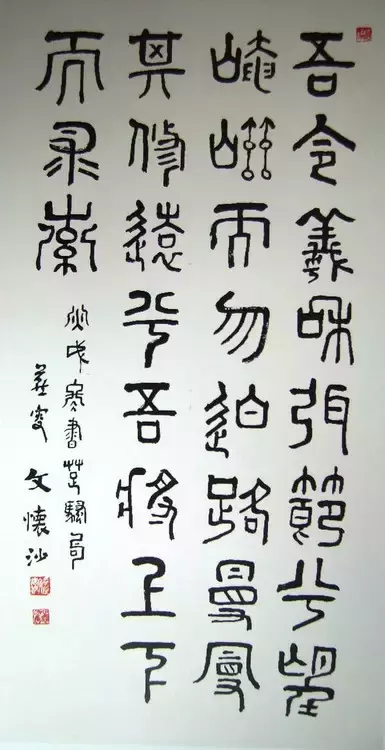 吾令羲和弭節兮望
崦嵫而勿迫路曼曼
其修遠兮吾將上下
而求索
戌寒書楚騷句
燕叟 文懷沙